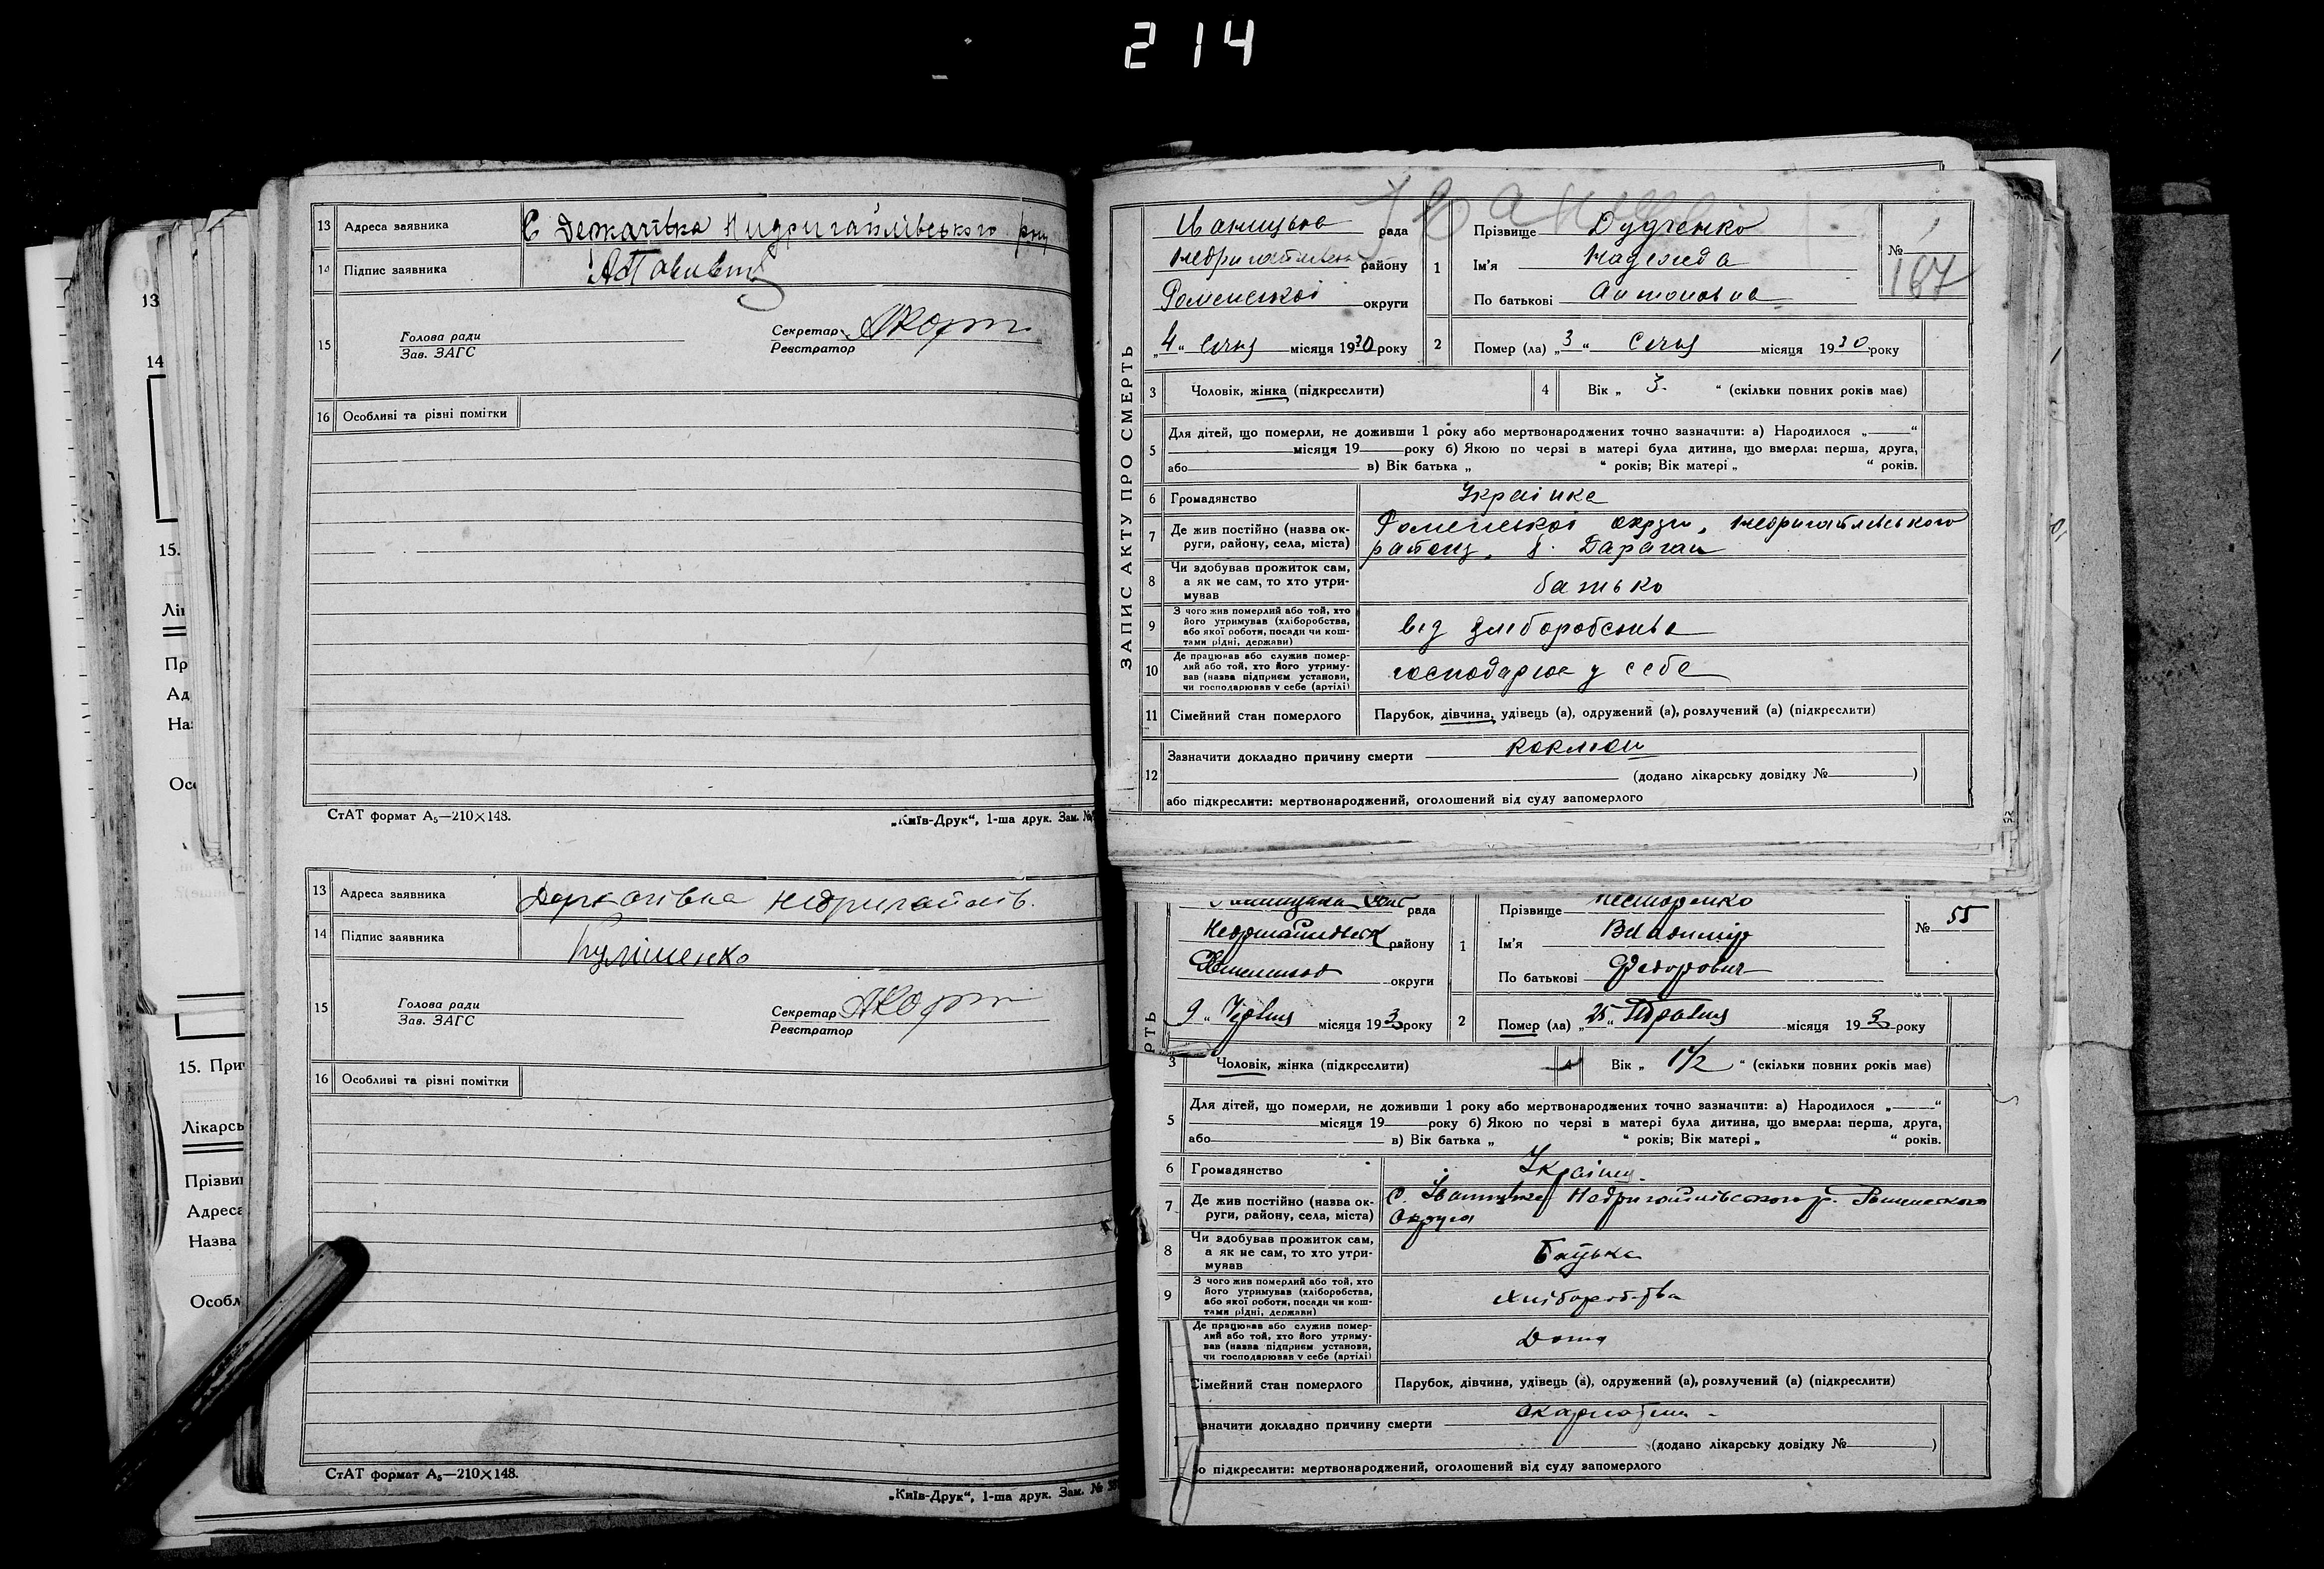 214
13 Адреса заявника С Деркачівка Нидригайлівського рну
14 Підпис заявника
15 Голова ради
Зав. ЗАГС
Секретар
Реєстратор
16 Особливі та різні помітки
СтАТ формат А5—210×148.
„Київ-Друк“, 1-ша друк. Зам. №
13 Адреса заявника Деркачівка Недригайлів.
14 Підпис заявника Кулішенко
15 Голова ради
Зав. ЗАГС
Секретар
Реєстратор
16 Особливі та різні помітки
СтАТ формат А5—210×148.
„Київ-Друк“, 1-ша друк. Зам. №
13
14
15.
Лі
Пр
Ад
На
Ос
15. При
Лікарсь
Прізви
Адреса
Назва
Особл
ЗАПИС АКТУ ПРО СМЕРТЬ
рада
району
Роменської округи
„4“ Січня місяця 1930 року
1 Прізвище Дудченко
Ім'я Надежда
По батькові Антоновна
№ 1
167
2 Помер (ла) „3“ Січня місяця 1930 року
3 Чоловік, жінка (підкреслити)
4 Вік „ 3. “ (скільки повних років має)
5 Для дітей, що померли, не доживши 1 року або мертвонароджених точно зазначити: а) Народилося „——“
місяця 19 року б) Якою по черзі в матері була дитина, що вмерла: перша, друга,
або в) Вік батька „ “ років; Вік матері „ “ років.
6 Громадянство Українка
7 Де жив постійно (назва ок-
руги, району, села, міста)
Роменської округи, Недригайлівського
району, х. Дараган
8 Чи здобував прожиток сам,
а як не сам, то хто утри-
мував
батько
9 З чого жив померлий або той, хто
його утримував (хліборобства,
або якої роботи, посади чи кош-
тами рідні, держави)
від хліборобства
10 Де працював або служив помер-
лий або той, хто його утриму-
вав (назва підприєм установи,
чи господарював у себе (артілі)
господарює у себе
11 Сімейний стан померлого Парубок, дівчина, удівець (а), одружений (а), розлучений (а) (підкреслити)
12 Зазначити докладно причину смерти коклюш
(додано лікарську довідку № )
або підкреслити: мертвонароджений, оголошений від суду запомерлого
РТЬ
рада
району
округи
9 „ Червня місяця 193 року
1 Прізвище Несторенко
Ім'я Владимир
По батькові Федорович
№ 55
2 Помер (ла) „25“ Травня місяця 193 року
3 Чоловік, жінка (підкреслити)
4 Вік „ 1½ “ (скільки повних років має)
5 Для дітей, що померли, не доживши 1 року або мертвонароджених точно зазначити: а) Народилося „——“
місяця 19 року б) Якою по черзі в матері була дитина, що вмерла: перша, друга,
або в) Вік батька „ “ років; Вік матері „ “ років.
6 Громадянство
7 Де жив постійно (назва ок-
руги, району, села, міста)
Недригайлівського р.
Округи
8 Чи здобував прожиток сам,
а як не сам, то хто утри-
мував
Батька
9 З чого жив померлий або той, хто
його утримував (хліборобства,
або якої роботи, посади чи кош-
тами рідні, держави)
Хліборобства
Де працював або служив помер-
лий або той, хто його утриму-
вав (назва підприєм установи,
чи господарював у себе (артілі)
Дома
Сімейний стан померлого Парубок, дівчина, удівець (а), одружений (а), розлучений (а) (підкреслити)
значити докладно причину смерти
(додано лікарську довідку № )
бо підкреслити: мертвонароджений, оголошений від суду запомерлого